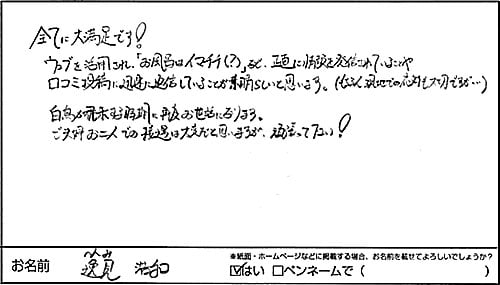 全てに大満足です!
ウェブを活用され、「お風呂はイマイチ(?)」など、正直に情報を発信されていることや
口コミ投稿に迅速に返信していることが素晴らしいと思います。(もちろん現地での応対も大切ですが…)
白鳥が飛来する時期に再度お世話になります。
ご夫婦お二人での接遇は大変だと思いますが、頑張って下さい!
※紙面・ホームページなどに掲載する場合、お名前を載せてよろしいでしょうか?
お名前 逸見 浩和 ☑はい □ペンネームで( )